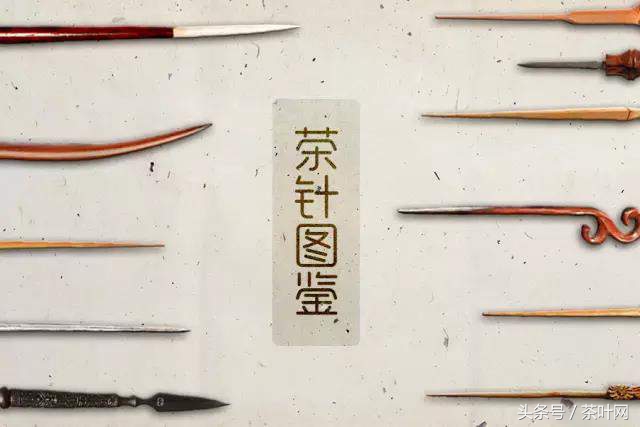 茶针图鉴
头条号 / 茶叶网